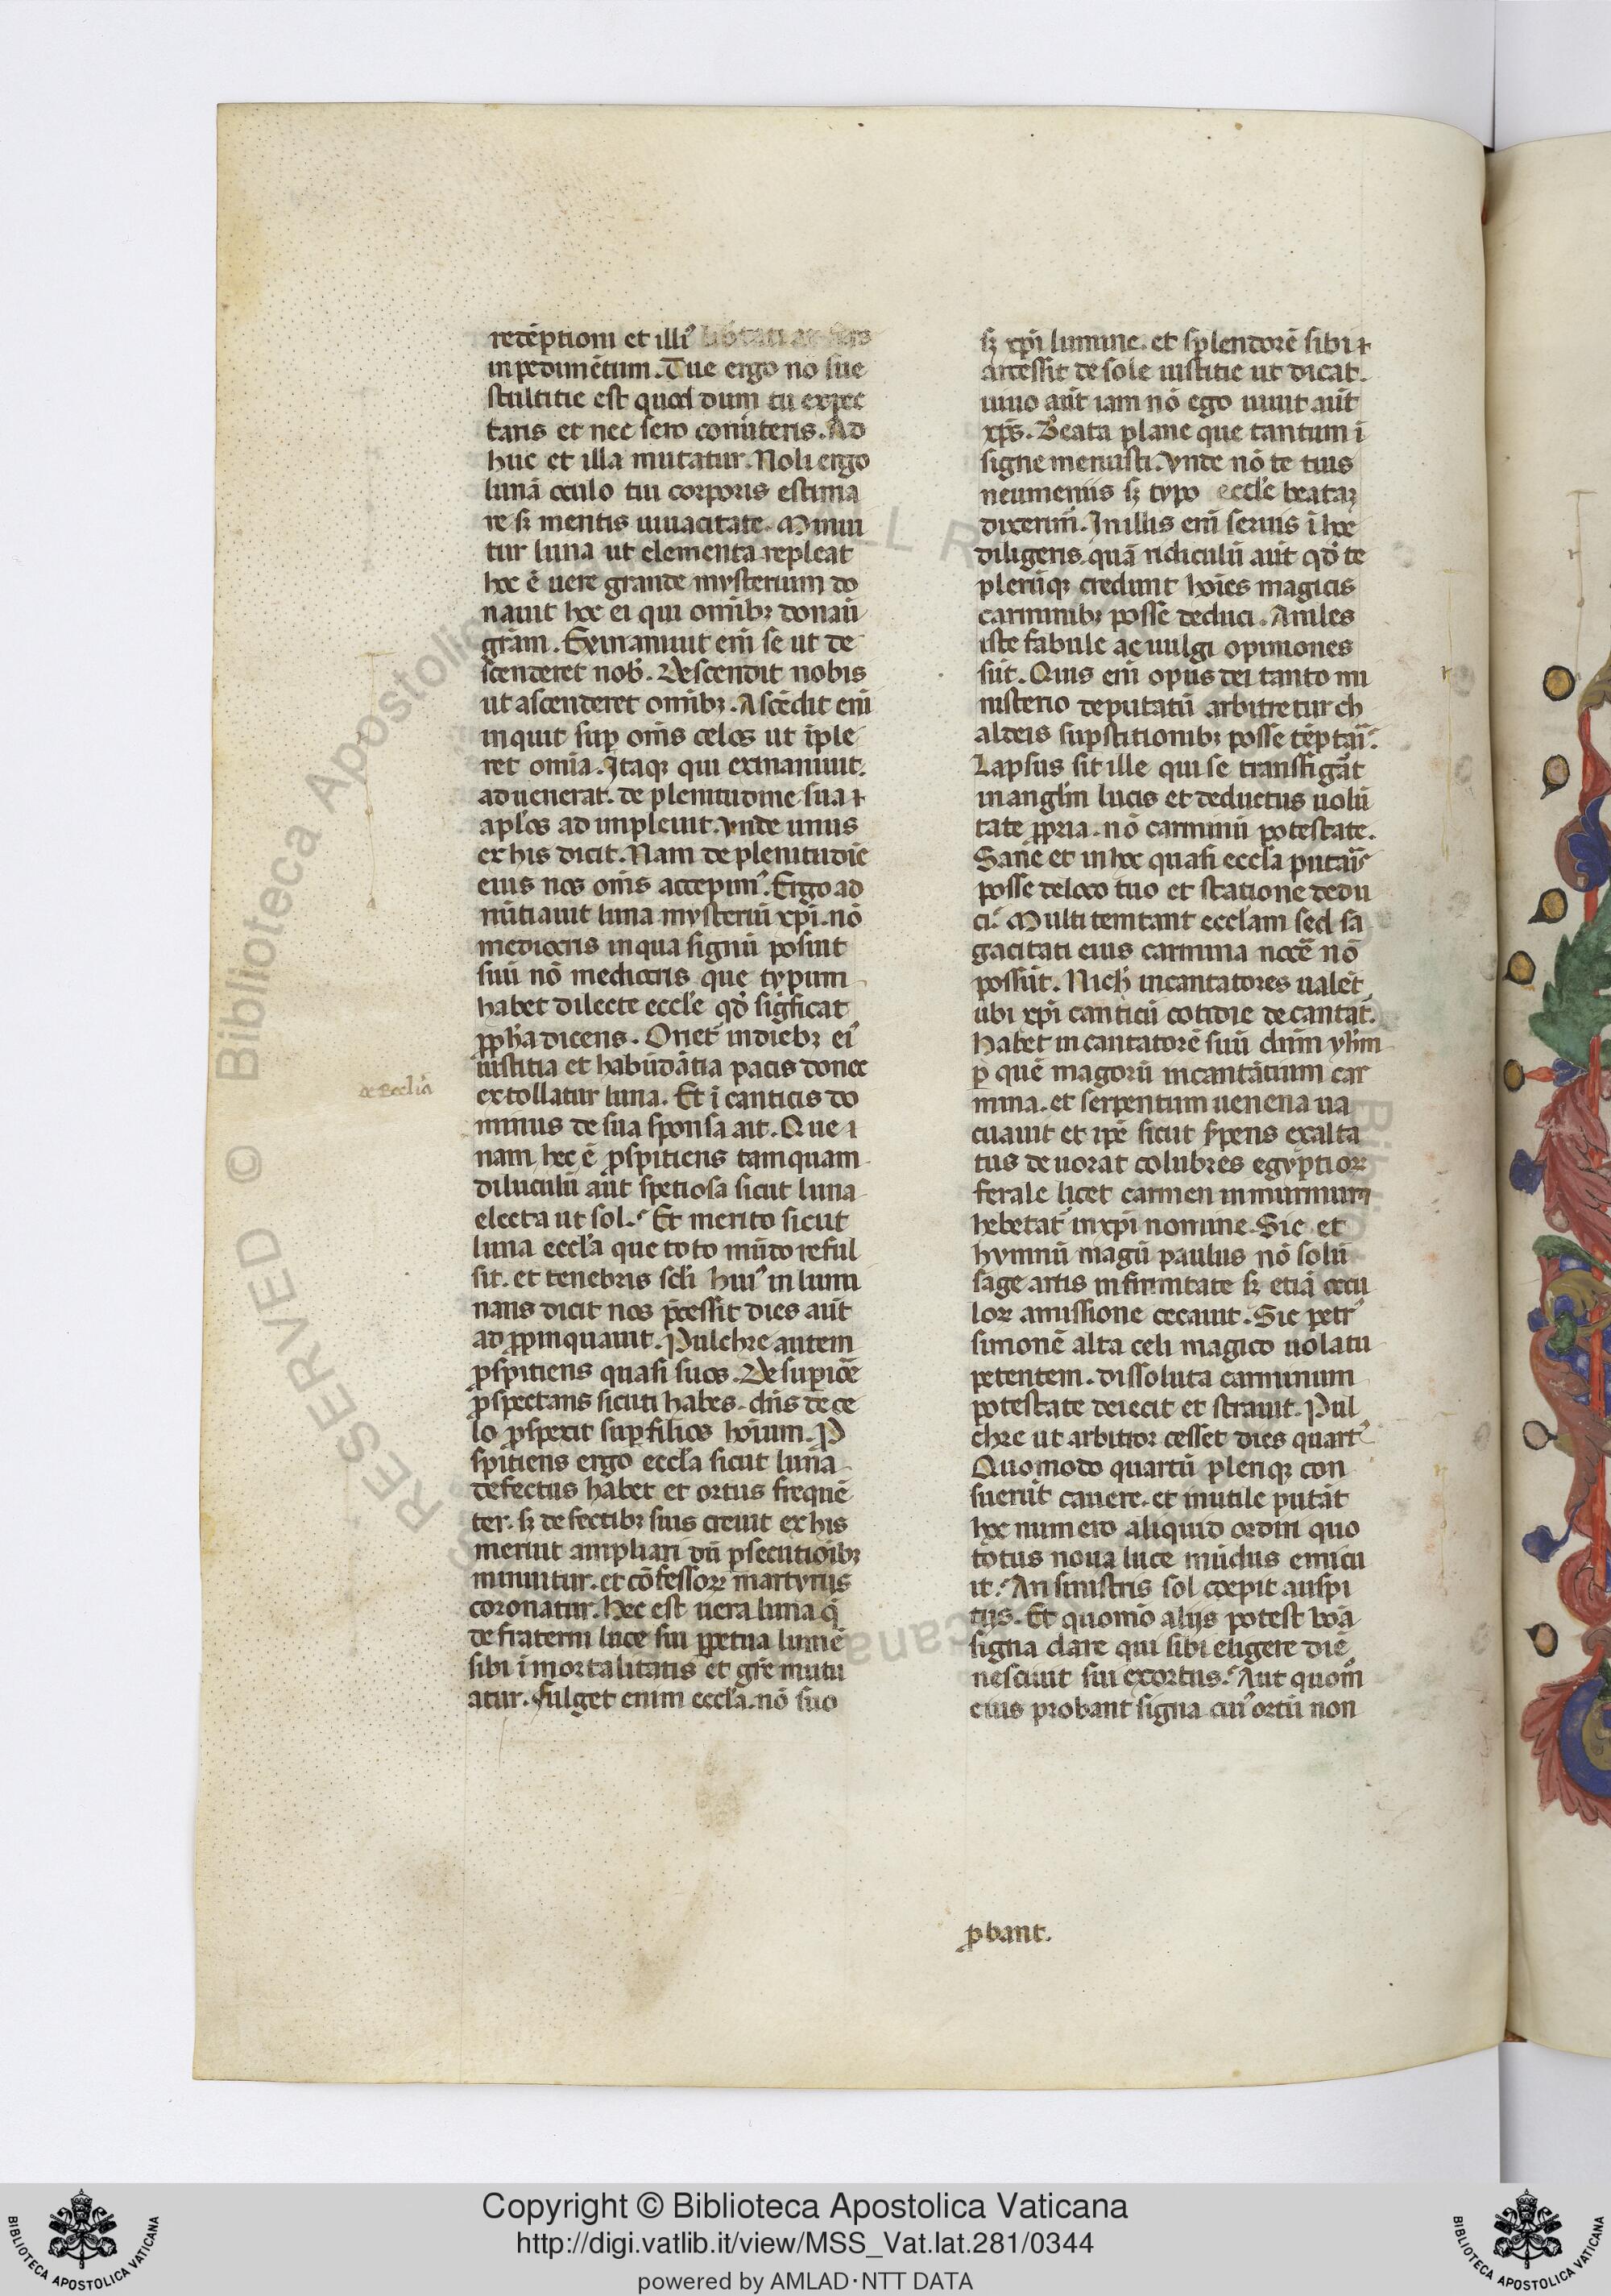 redēptioni et illiꝰ libertati
inpedimētum. Tue ergo nō sue
stultitie est quod dum tu expec
taris et nec sero conūteris. Ad
huc et illa mutatur. Noli ergo
lunā oculo tui corporis estima
re sꝫ mentis uiuacitate. Minui
tur luna ut elementa repleat
hoc ē uere grande mysterium do
nauit hoc ei qui omībꝫ donaū
grām. Exinaniuit enī se ut de
scenderet nob̄. Descendit nobis
ut ascenderet omībꝫ. Ascēdit enī
inquit suꝑ om̄s celos ut īple
ret omīa. Itaqꝫ qui exinaniuit.
aduenerat. de plenitudine sua ⁊
apl̄os ad impleuit. Vnde unus
ex his dicit. Nam de plenitudīe
eius nos om̄s accepimꝰ. Ergo ad
nūtiauit luna mysteriū xp̄i. nō
mediocris in qua signū posuit
suū nō mediocris que typum
habet dilecte eccl̄e qđ sigficat
ꝓph̄a dicens. Orietꝰ in diebꝫ eiꝰ
iustitia et habūdātia pacis donec
extollatur luna. Et ī canticis do
minus de sua sponsa ait. Que ı
nam hec ē ꝓspitiens tamquam
diluculū aūt spetiosa sicut luna
electa ut sol. Et merito sicut
luna eccl̄a que toto mūdo reful
sit. et tenebris scl̄i huiꝰ in lumi
nans dicit nos p̄cessit dies aūt
ad ꝓpinquauit. Pulchre autem
ꝓspitiens quasi suos. De supiōe
ꝓspectans sicuti habes. dn̄s de ce
lo ꝓspexit suꝑ filios hoīum. P
spitiens ergo eccl̄a sicut luna
defectus habet et ortus frequē
ter. sꝫ defectibꝫ suis creuit ex his
meruit ampliari dū ꝑsecutioībꝫ
minuitur. et cōfessoꝝ martyriis
coronatur. Hec est uera luna q̄
de fraterni luce sui ꝑpetua lumē
sibi īmortalitatis et gr̄e mutu
atur. Fulget enim eccl̄a. nō suo
de Eccl̄ia
sꝫ xp̄i lumine. et splendorē sibi ⁊
arcessit de sole iustitie ut dicat.
uiuo aūt iam nō ego uiuit aūt
xp̄s. Beata plane que tantum ī
signe meruisti. Vnde nō te tuis
neumeniis sꝫ typo eccl̄e beataꝫ
dixerim̄. In illis enī seruis ī hoc
diligeris. quā ridiculū aūt qđ te
plerūqꝫ credunt hoīes magicis
carminibꝫ posse deduci. Aniles
iste fabule ac uulgi opiniones
sūt. Quis enī opus dei tanto mi
nisterio deputatū arbitretur ch
aldeis suꝑstitionibꝫ posse tēptari.
Lapsus sit ille qui se transfigāt
in angl̄m lucis et deductus uolū
tate ꝓpria. nō carminū potestate.
Sane et in hoc quasi eccl̄a putat̄
posse de loco tuo et statione dedu
ci. Multi temtant eccl̄am sed sa
gacitati eius carmina nocē nō
possūt. Nich̄ incantatores ualēt
ubi xp̄i canticū cotidie decantat̄.
Habet in cantatorē suū dn̄m yh̄m
ꝑ quē magorū incantātium car
mina. et serpentum uenena ua
cuauit et ip̄e sicut sꝑens exalta
tus deuorat colubres egyptioꝝ
ferale licet carmen inmurmurī
hebetat̄ in xp̄i nomine. Sic et
hymnū magū paulus nō solū
sage artis infirmitate sꝫ etiā ocu
loꝝ amissione cecauit. Sic petrꝰ
simonē alta celi magico uolatu
petentem. dissoluta carminum
potestate deiecit et strauit. Pul
chre ut arbitror cesset dies quartꝰ
Quomodo quartū pleriqꝫ con
suerūt cauere. et inutile putāt
hoc numero aliquid ordiri quo
totus noua luce mūdus emicu
it. An sinistris sol cœpit auspi
tijs. Et quomō alijs potest boā
signa dare qui sibi eligere diē
nesciuit sui exortus. Aut quom̄
eius probant signa cuiꝰ ortū non
ꝓbant.
Copyright © Biblioteca Apostolica Vaticana
http://digi.vatlib.it/view/MSS_Vat.lat.281/0344
powered by AMLAD·NTT DATA